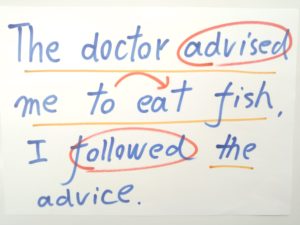 The doctor advised
me to eat fish.
I followed the
advice.